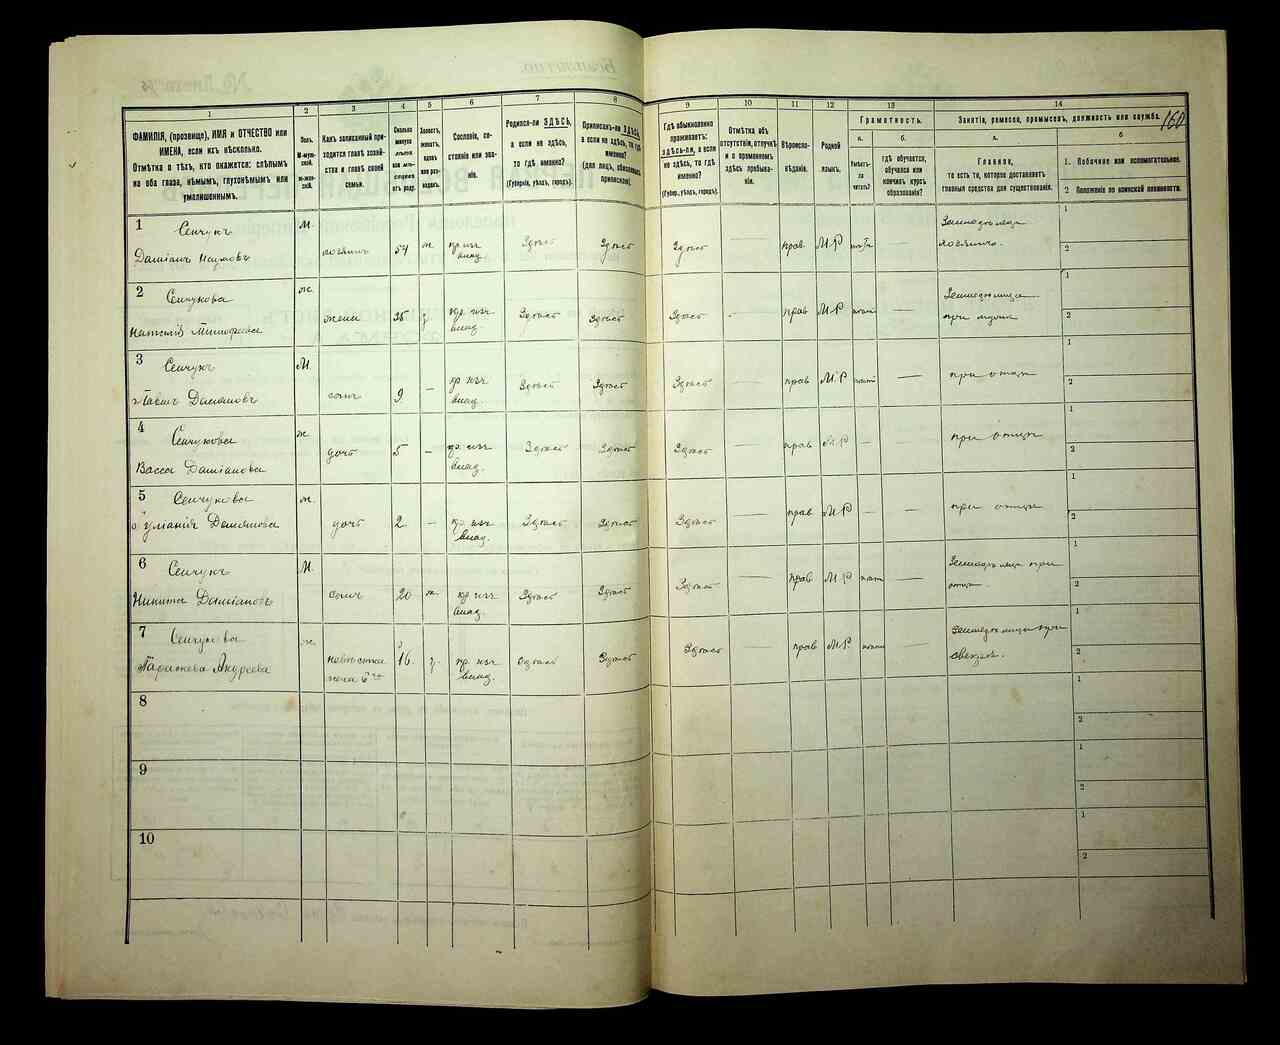 160
1
2
3
4
5
6
7
8
9
10
11
12
13
14
ФАМИЛІЯ, (прозвище), ИМЯ и ОТЧЕСТВО или
ИМЕНА, если ихъ нѣсколько.
Отмѣтка о тѣхъ, кто окажется: слѣпымъ
на оба глаза, нѣмымъ, глухонѣмымъ или
умалишеннымъ.
Полъ.
М-муж-
ской.
ж-жен-
скій.
Какъ записанный при-
ходится главѣ хозяй-
ства и главѣ своей
семьи.
Сколько
минуло
лѣтъ
или мѣ-
сяцевъ
отъ роду.
Холостъ,
женатъ,
вдовъ
или раз-
веденъ.
Сословіе, со-
стояніе или зва-
ніе.
Родился-ли ЗДѢСЬ,
а если не здѣсь,
то гдѣ именно?
(Губернія, уѣздъ, городъ).
Приписанъ-ли ЗДѢСЬ,
а если не здѣсь, то гдѣ
именно?
(для лицъ, обязанныхъ
припиской).
Гдѣ обыкновенно
проживаетъ:
ЗДѢСЬ-ЛИ, а если
не здѣсь, то гдѣ
именно?
(Губерн., уѣздъ, городъ).
Отмѣтка объ
отсутствіи, отлучкѣ
и о временномъ
здѣсь пребыва-
ніи.
Вѣроиспо-
вѣданіе.
Родной
языкъ.
Грамотность.
а.
Умѣетъ-
ли
читать?
б.
гдѣ обучается,
обучался или
кончилъ курсъ
образованія?
Занятіе, ремесло, промыселъ, должность или служба.
а.
Главное,
то есть то, которое доставляетъ
главныя средства для существованія.
б
1. Побочное или вспомогательное.
2 Положеніе по воинской повинности.
1 Сенчукъ
Даміанъ Наумовъ
М хозяинъ 54 ж. кр. изъ влад. Здѣсь Здѣсь Здѣсь — прав. М.Р нѣтъ — Земледѣлецъ хозяинъ.
1
2
2 Сенчукова
Наталія Тимофеева
ж. жена з. кр. изъ влад. Здѣсь Здѣсь Здѣсь — прав М.Р нѣтъ — Земледѣлица при мужѣ
1
2
3 Сенчукъ
Даміановъ
М. сынъ 9 — кр изъ влад. Здѣсь Здѣсь Здѣсь — прав М.Р нѣтъ — при отцѣ
1
2
4 Сенчукова
Васса Даміанова
ж. дочь 5 — кр. изъ влад. Здѣсь Здѣсь Здѣсь — прав М.Р — при отцѣ
1
2
5 Сенчукова
Даміанова
ж. дочь 2 — кр. изъ влад. Здѣсь Здѣсь Здѣсь — прав М.Р — — при отцѣ
1
2
6 Сенчукъ
Никита Даміановъ
М. сынъ 20 ж. кр изъ влад. Здѣсь Здѣсь Здѣсь — прав М.Р нѣтъ — Земледѣлецъ при отцѣ.
1
2
7 Сенчукова
Андреева
ж невѣстка жена 6го 16. з. кр. изъ влад. Здѣсь Здѣсь Здѣсь — прав М.Р. нѣтъ — Земледѣлица при свекрѣ.
1
2
8
1
2
9
1
2
10
1
2